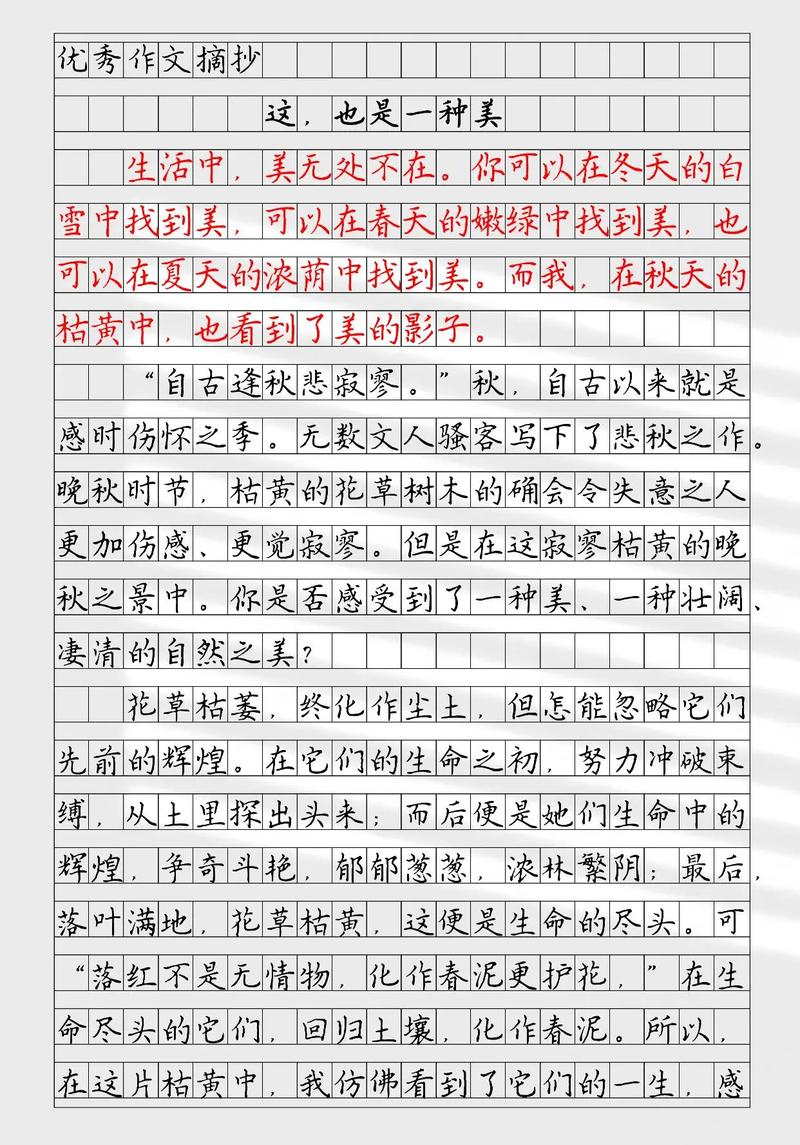 优秀作文摘抄
这，也是一种美
生活中，美无处不在。你可以在冬天的白
雪中找到美，可以在春天的嫩绿中找到美，也
可以在夏天的浓荫中找到美。而我，在秋天的
枯黄中，也看到了美的影子。
“自古逢秋悲寂寥。”秋，自古以来就是
感时伤怀之季。无数文人骚客写下了悲秋之作。
晚秋时节，枯黄的花草树木的确会令失意之人
更加伤感、更觉寂寥。但是在这寂寥枯黄的晚
秋之景中。你是否感受到了一种美、一种壮阔、
凄清的自然之美？
花草枯萎，终化作尘土，但怎能忽略它们
先前的辉煌。在它们的生命之初，努力冲破束
缚，从土里探出头来；而后便是她们生命中的
辉煌，争奇斗艳，郁郁葱葱，浓林繁阴；最后，
落叶满地，花草枯黄，这便是生命的尽头。可
“落红不是无情物，化作春泥更护花，”在生
命尽头的它们，回归土壤，化作春泥。所以，
在这片枯黄中，我仿佛看到了它们的一生，感